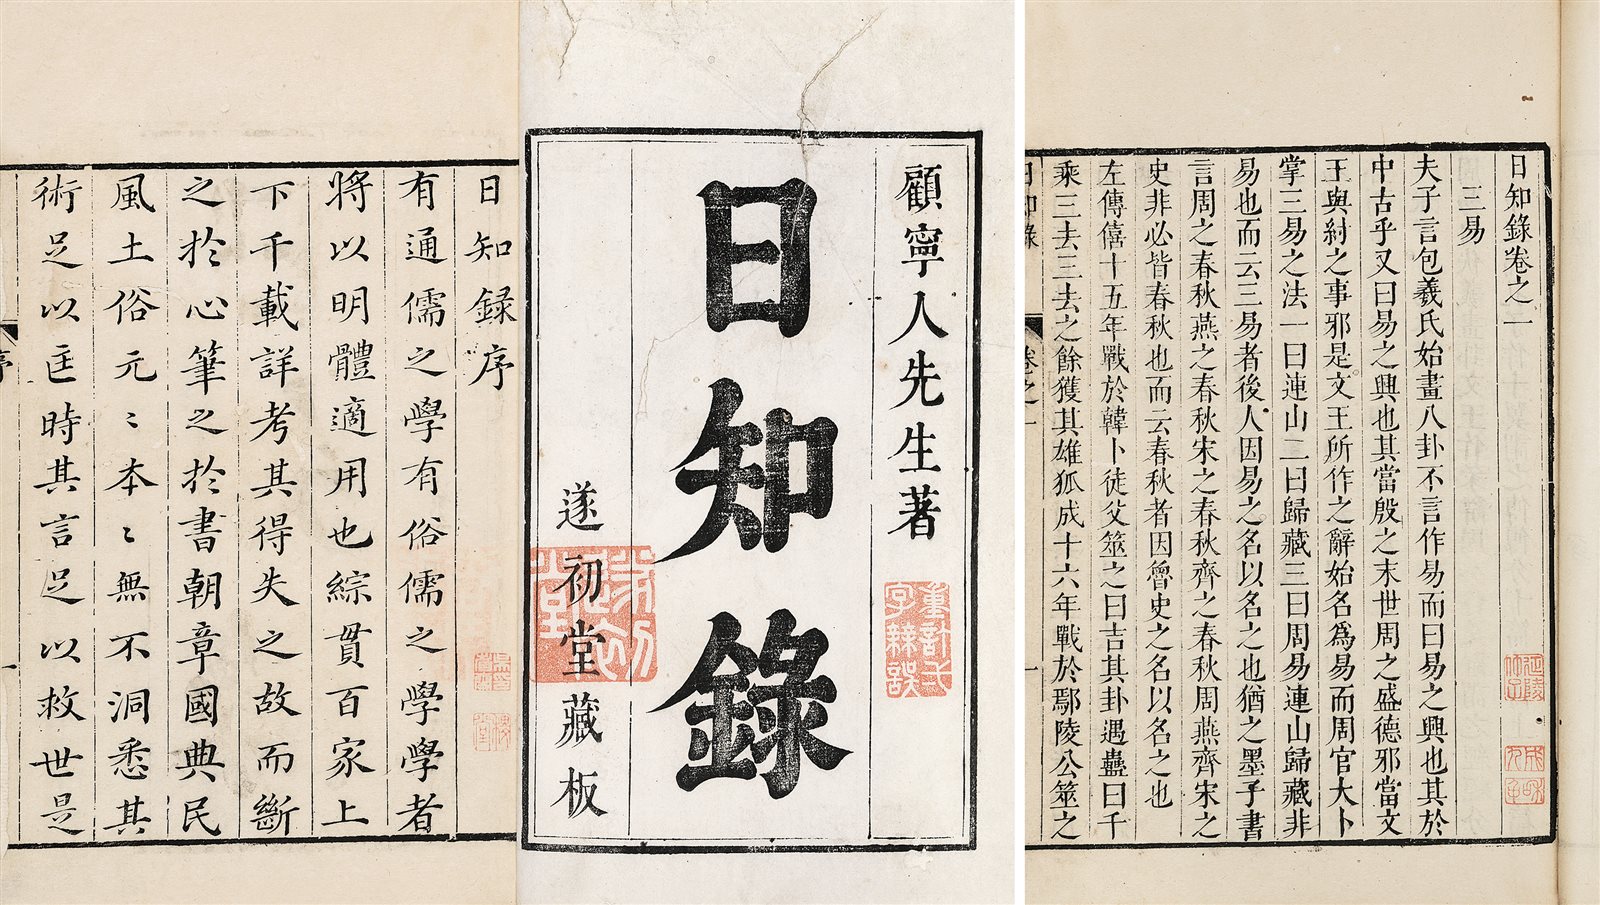 日知錄卷之一
三易
夫子言包羲氏始畫八卦不言作易而曰易之興也其於
中古乎又曰易之興也其當殷之末世周之盛德邪當文
王與紂之事邪是文王所作之辭始名爲易而周官大卜
掌三易之法一曰連山二曰歸藏三曰周易連山歸藏非
易也而云三易者後人因易之名以名之也猶之墨子書
言周之春秋燕之春秋宋之春秋齊之春秋周燕齊宋之
史非必皆春秋也而云春秋者因魯史之名以名之也
左傳僖十五年戰於韓卜徒父筮之曰吉其卦遇蠱曰千
乘三去三去之餘獲其雄狐成十六年戰於鄢陵公筮之
日知錄 卷之一 一
顧寧人先生著
日知錄
遂初堂藏板
遂初堂
日知錄序
有通儒之學有俗儒之學學者
將以明體適用也綜貫百家上
下千載詳考其得失之故而斷
之於心筆之於書朝章國典民
風土俗元〻本〻無不洞悉其
術足以匡時其言足以救世是
序 一